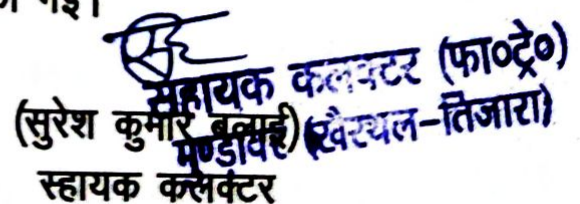 गई।
सहायक कलक्टर (फा०ट्रे०)
मुण्डावर (खैरथल-तिजारा)
(सुरेश कुमार बुलाई)
स्हायक कलक्टर